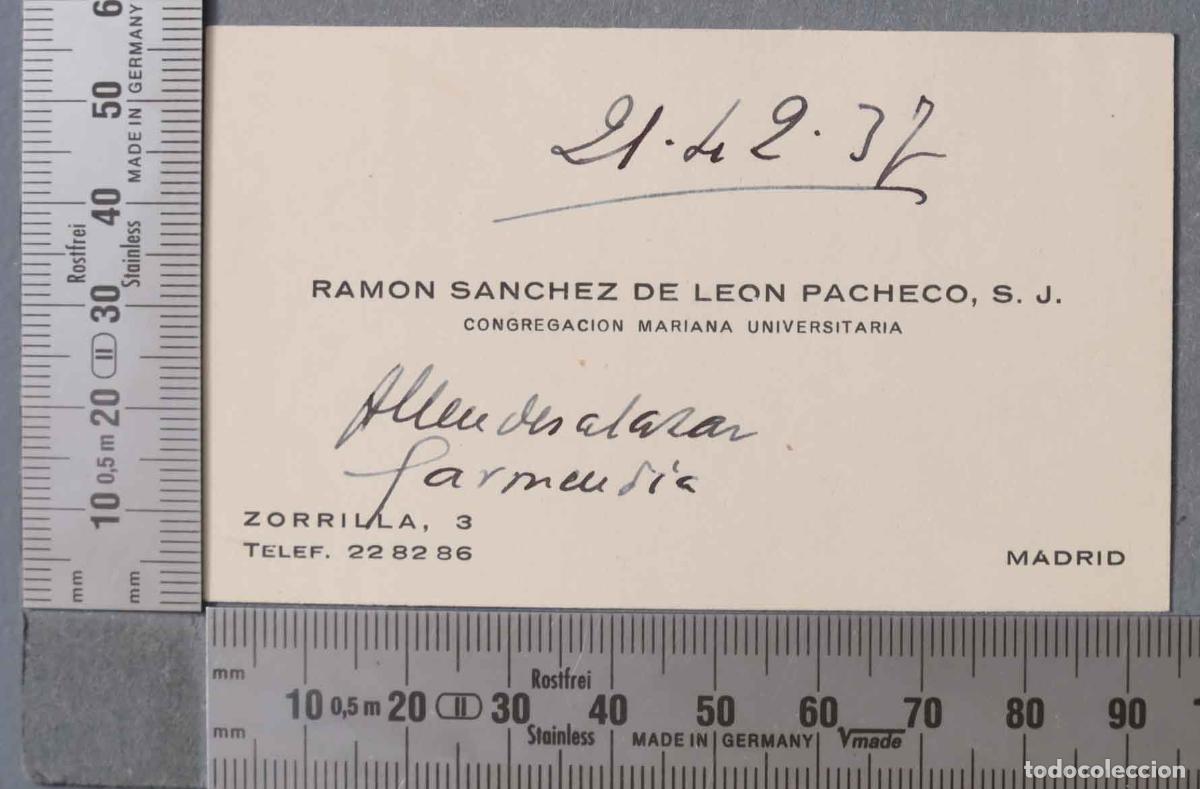 21.42.37
RAMON SANCHEZ DE LEON PACHECO, S. J.
CONGREGACION MARIANA UNIVERSITARIA
Allendesalazar
Garmendia
ZORRILLA, 3
TELEF. 22 82 86
MADRID
mm 10 0,5 m 20 II 30 40 50 6
Rostfrei
Stainless
MADE IN GERMANY
mm
mm
Rostfrei
10 0,5 m 20 II 30 40 50 60 70 80 90
mm
Stainless MADE IN GERMANY Vmade
todocoleccion